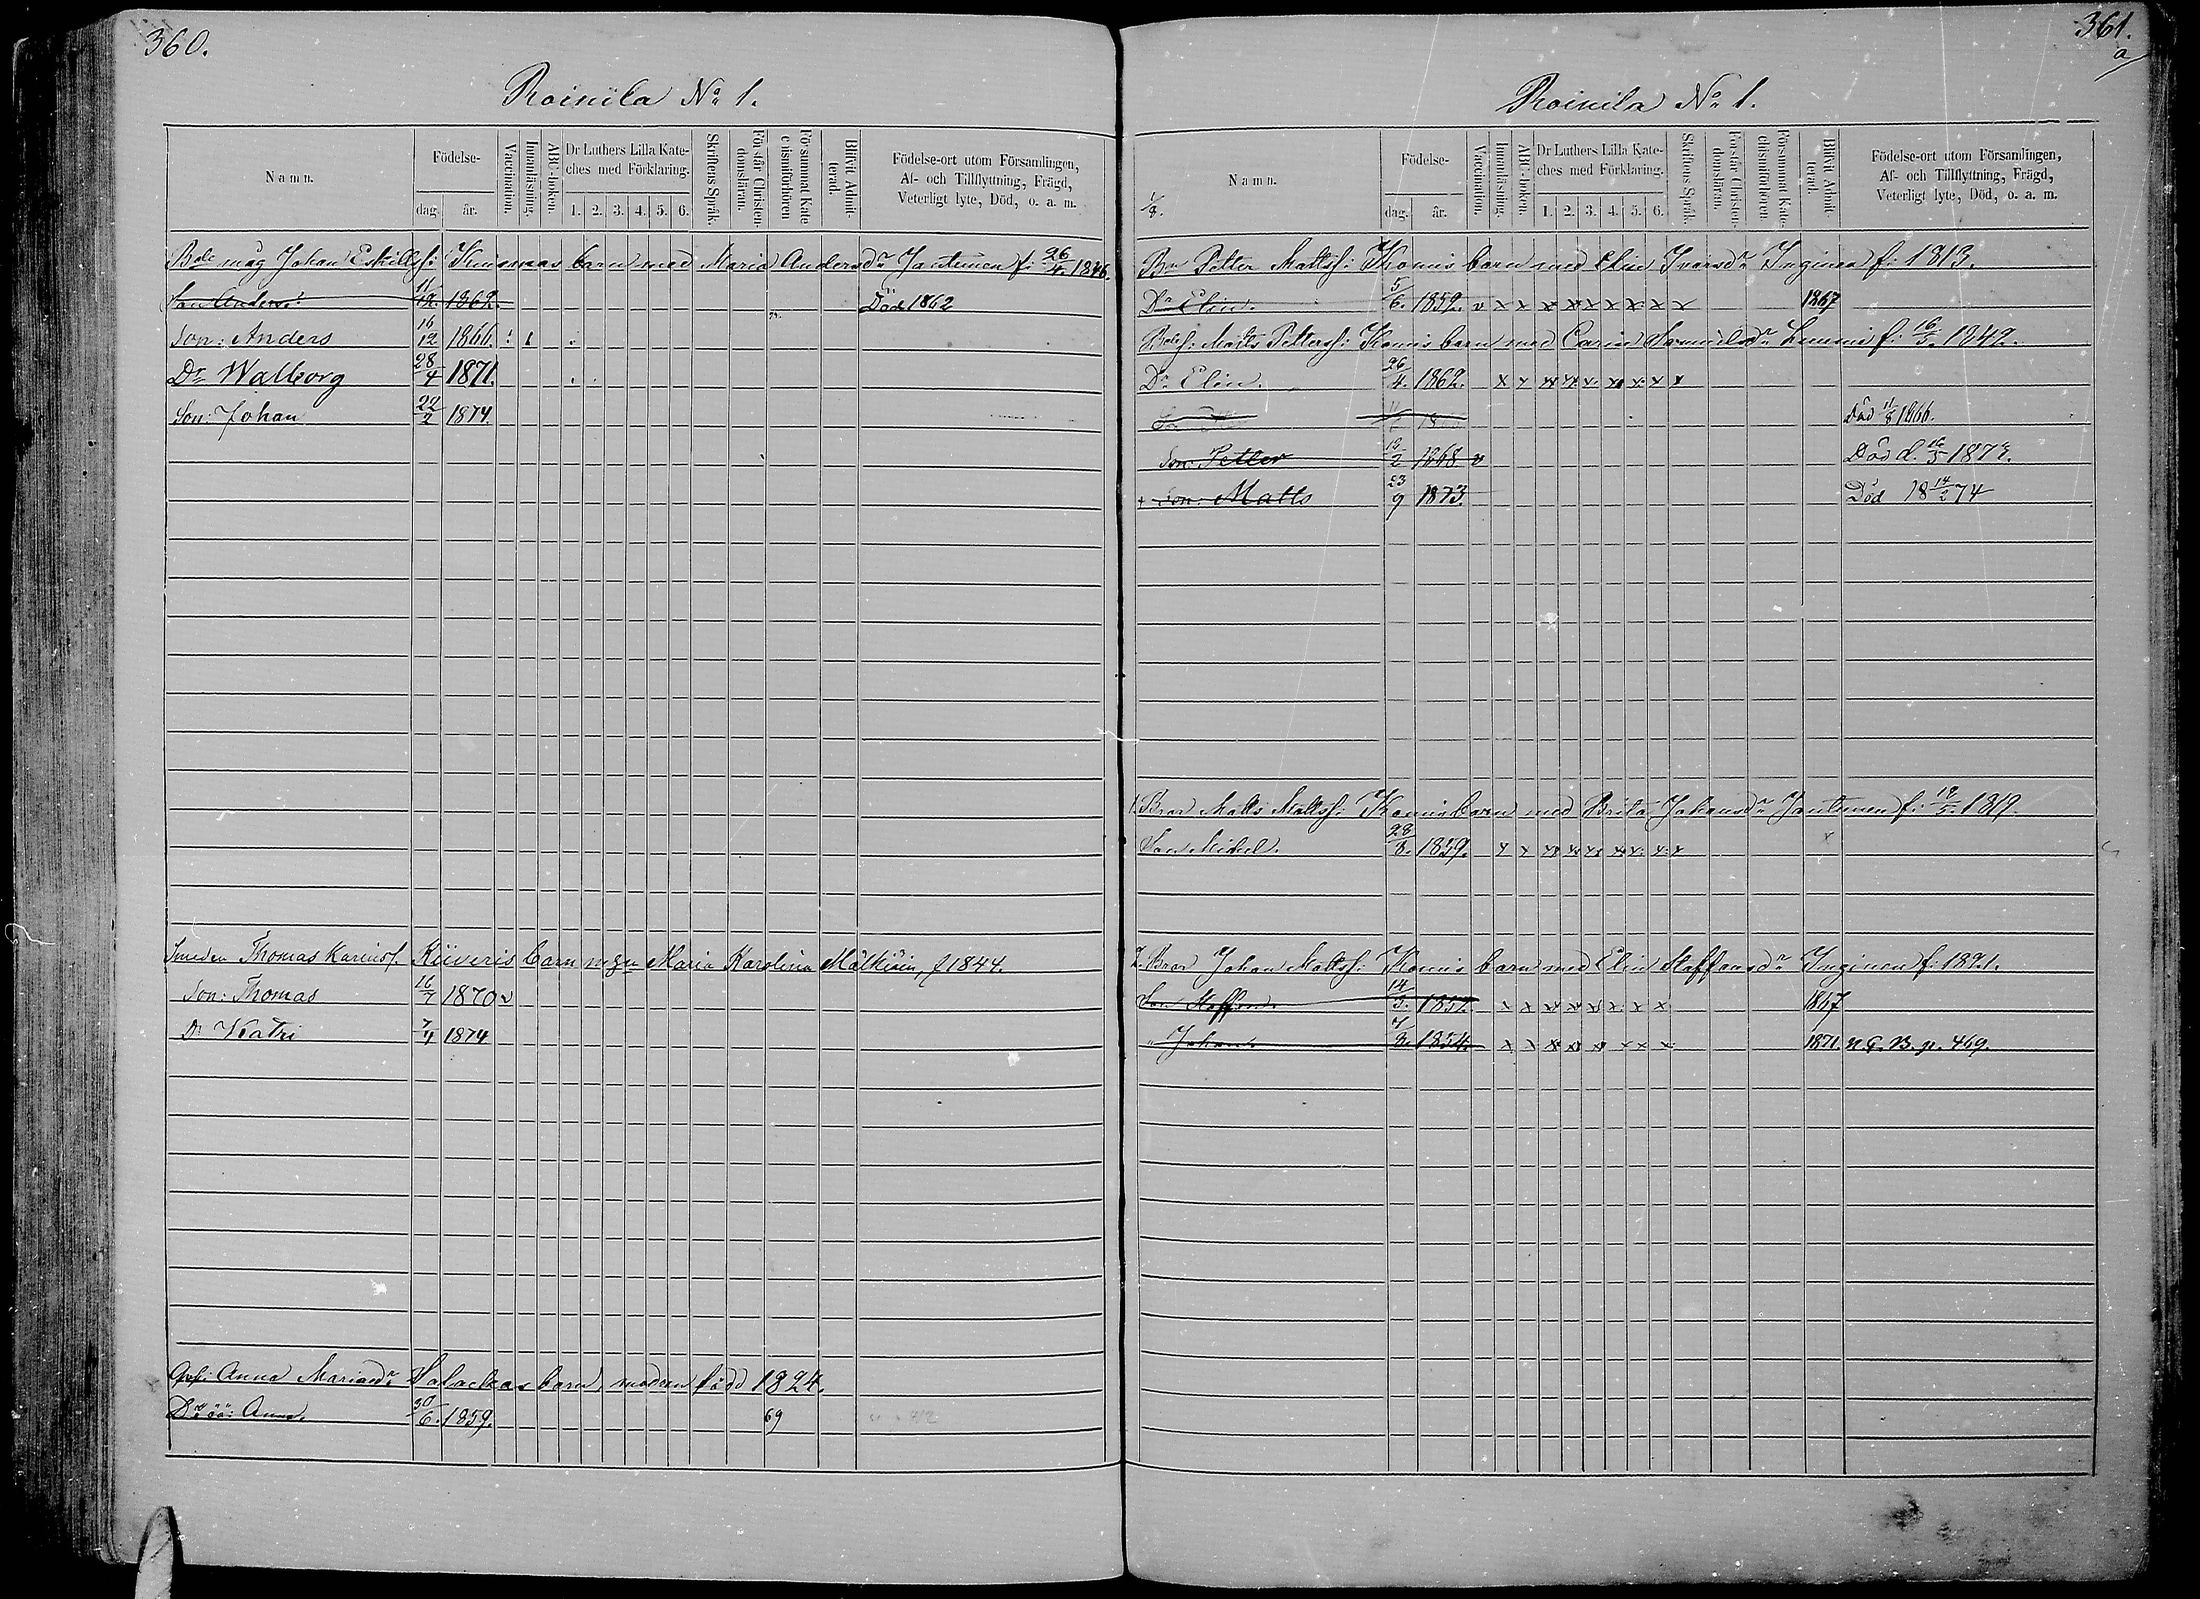 360.
Roinila No 1.
Namn.
Födelse-
dag.
år.
Vaccination.
Innanläsning.
ABC-boken.
Dr Luthers Lilla Kate-
ches med Förklaring.
1. 2. 3. 4. 5. 6.
Skriftens Språk.
Förstår Christen-
domslåran.
Försummat Kate
cismiförhören
Blifvit Admit-
terad.
Födelse-ort utom Församlingen,
Af- och Tillflyttning, Frägd,
Veterligt lyte, Död, o. a. m.
Bde måg Johan Eskilss: barn med Maria Andersdr Jantunen f: 26/4 1846.
Son Anders: 11/12. 1862. Död 1862
Son: Anders 16/12 1866.
Dr Walborg 28/4 1871.
Son: Johan 22/2 1874.
Smeden Thomas Karinis. Kiiveris barn Maria Karolina f 1844.
Son: Thomas 16/7 1870 v
Dr Katri 7/4 1874
Anna Mariaedr barn, modren född 1824.
Dr oä: Anna. 30/6. 1859. 69
361.
a
Roinila No 1.
Namn.
1/8.
Födelse-
dag.
år.
Vaccination.
Innanläsning.
ABC-boken.
Dr Luthers Lilla Kate-
ches med Förklaring.
1. 2. 3. 4. 5. 6.
Skriftens Språk.
Förstår Christen-
domslåran.
Försummat Kate-
chismiförhören.
Blifvit Admit-
terad.
Födelse-ort utom Församlingen,
Af- och Tillflyttning, Frägd,
Veterligt lyte, Död, o. a. m.
Bn Petter Mattss: Komis barn med Elin Ivarsdr Inginen f: 1813.
Dr Elin. 5/6. 1852. v x x x x x x x x x 1867
Matts Petterss: Komis barn med Carin Samuelsdr f: 16/5. 1842.
Dr Elin. 26/4. 1862. x x x x x x x x x
Död 11/8 1866.
Son: Petter 12/2 1868 v Död d. 1873.
+ Son: Matts 23/9 1873. Död 18 14/2 74
1. Bror Matts Mattss: Komis barn med Brita Johansdr Jantunen f: 1819.
Son Michel. 28/8. 1859. x x x x x x x x x x
2. Bror Johan Mattss: Komis barn med Elin Staffansdr Inginen f: 1821.
Son Staffan. 14/3. 1851. x x x x x x x x 1867
" Johan. 7/8. 1854. x x x x x x x x 1871. n. C. B. p. 469.